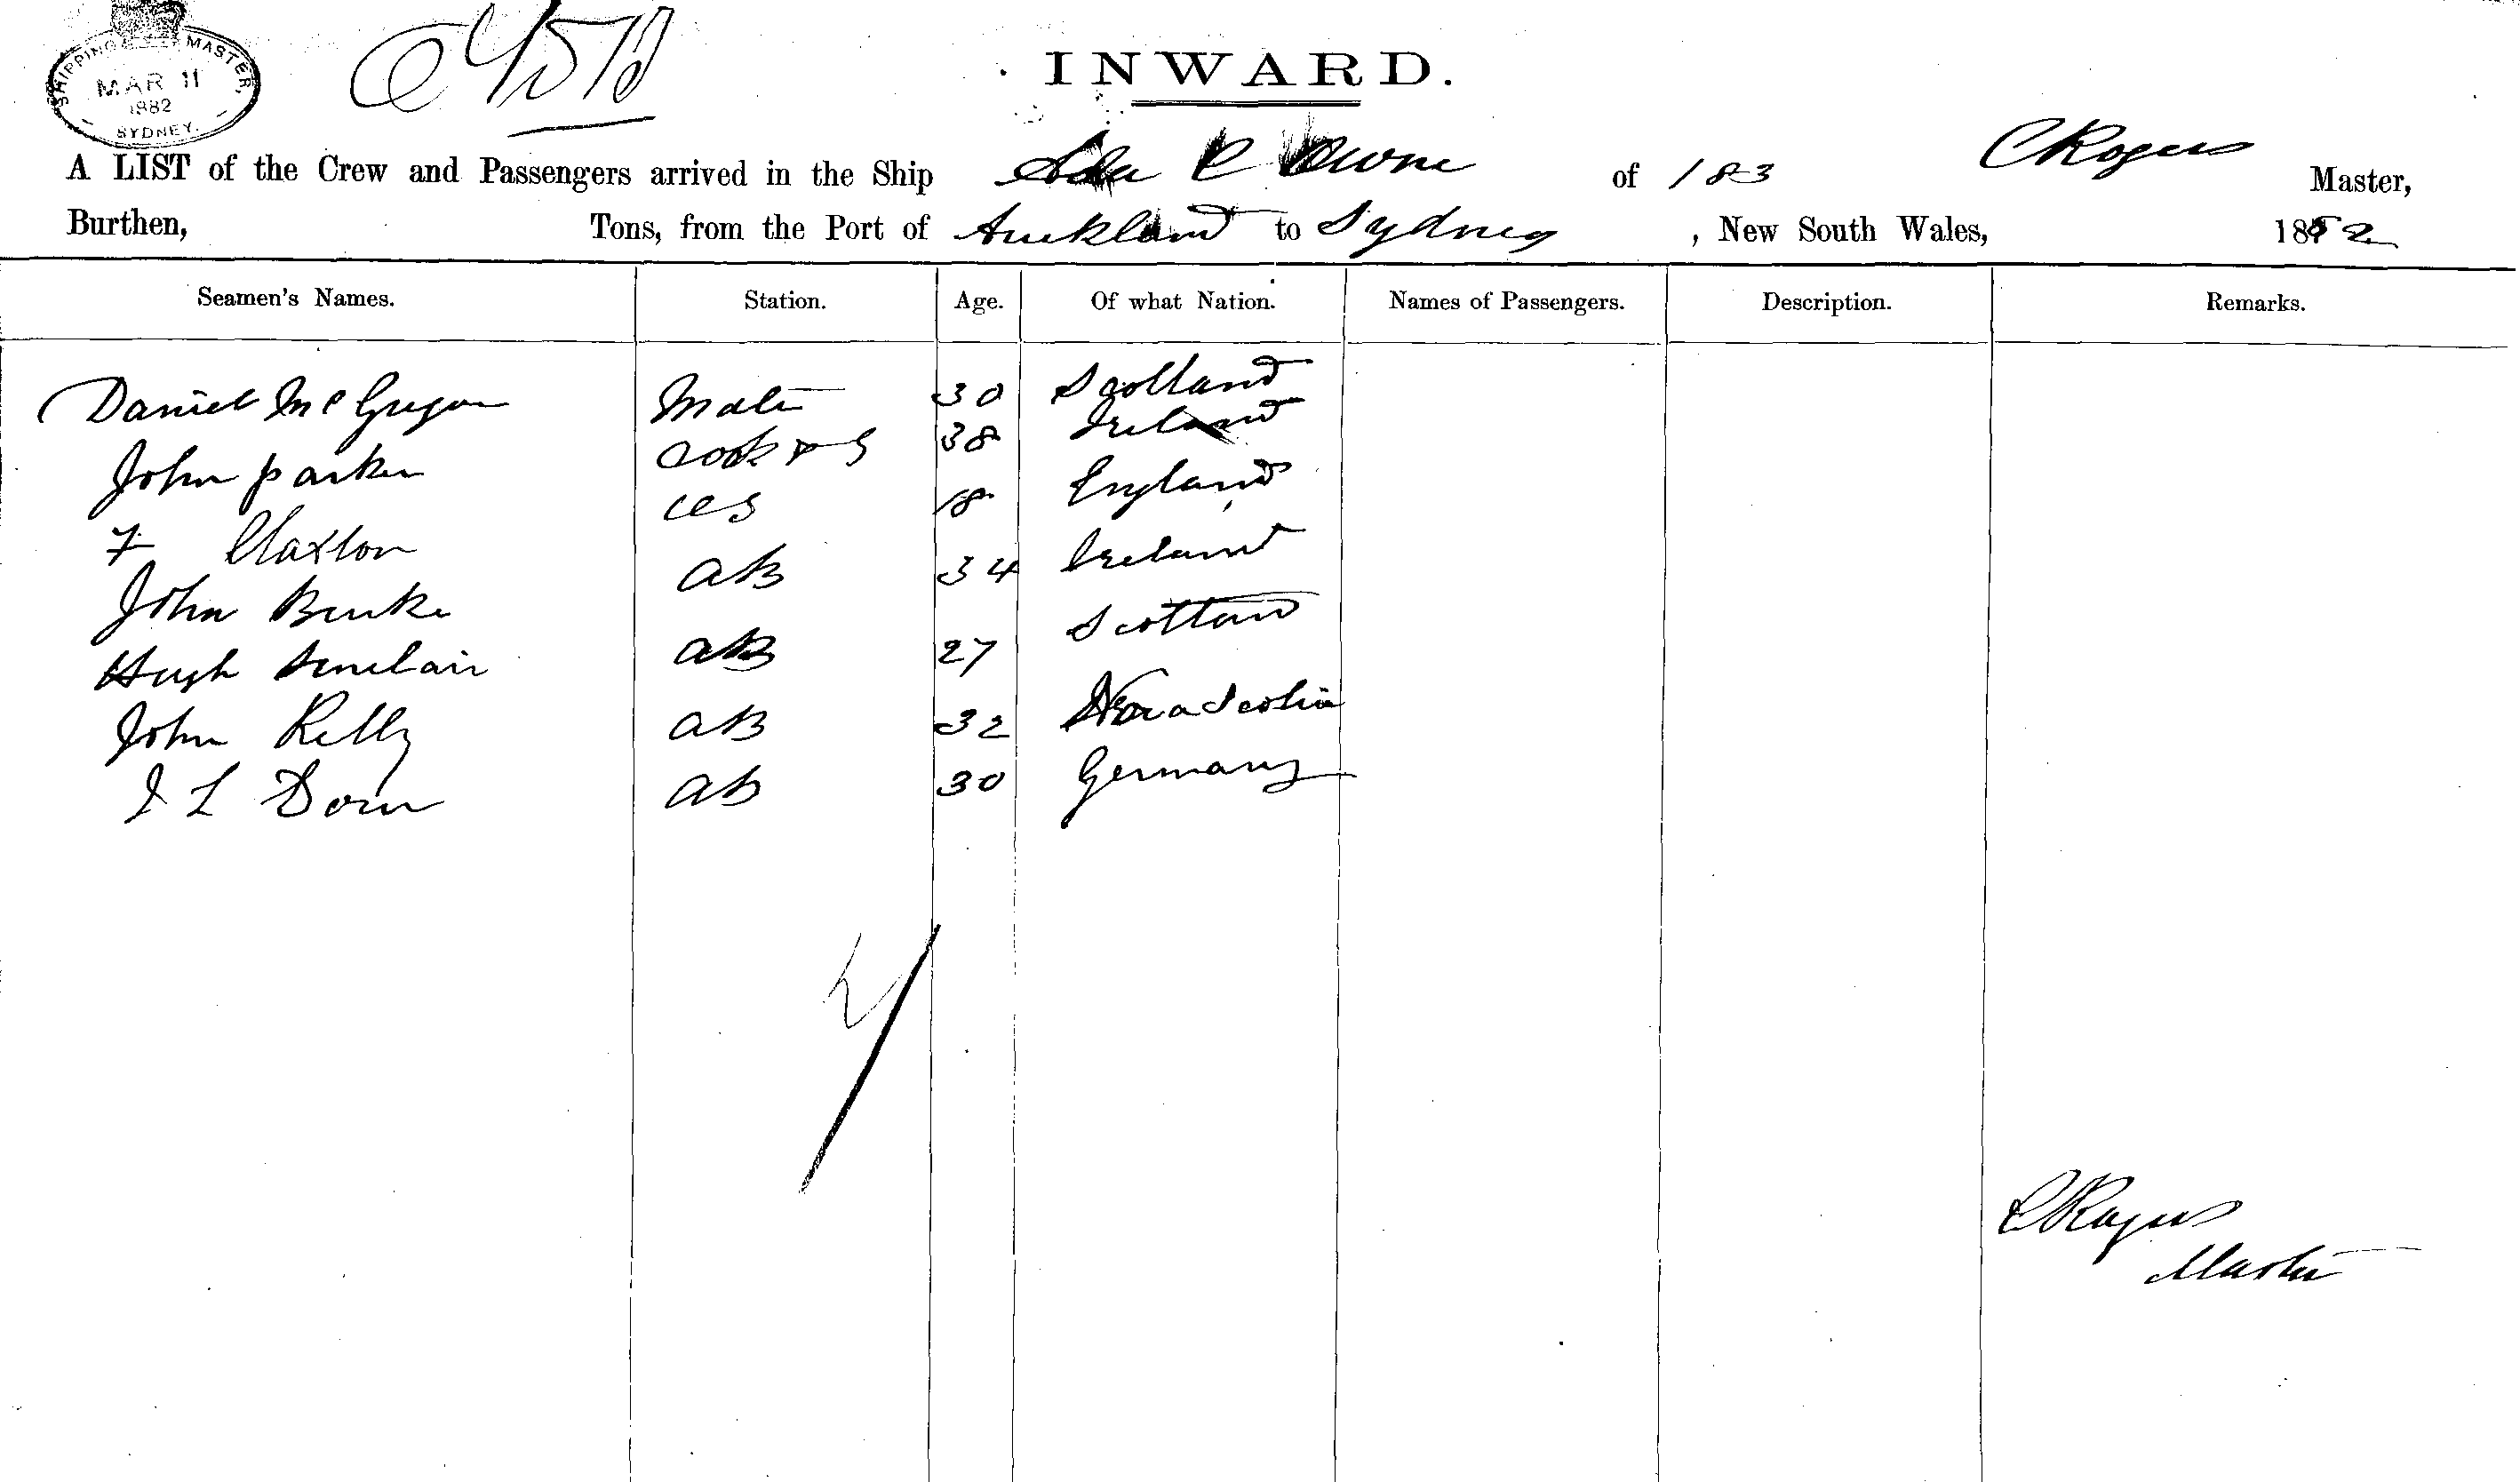 SHIPPING MASTER,
MAR 11
1882
SYDNEY.
INWARD.
A LIST of the Crew and Passengers arrived in the Ship Ada C Owne of 183 C Rogers Master,
Burthen, Tons, from the Port of Auckland to Sydney, New South Wales, 1882
Seamen's Names. Station. Age. Of what Nation. Names of Passengers. Description. Remarks.
Daniel McGregor Mate 30 Scotland
John parker Cook & S 38 Ireland
F Claxton 18 England
John Burke AB 34 Ireland
Hugh Sinclair AB 27 Scotland
John Kelly AB 32 Nova Scotia
J L Dorn AB 30 Germany
C Rogers
Master